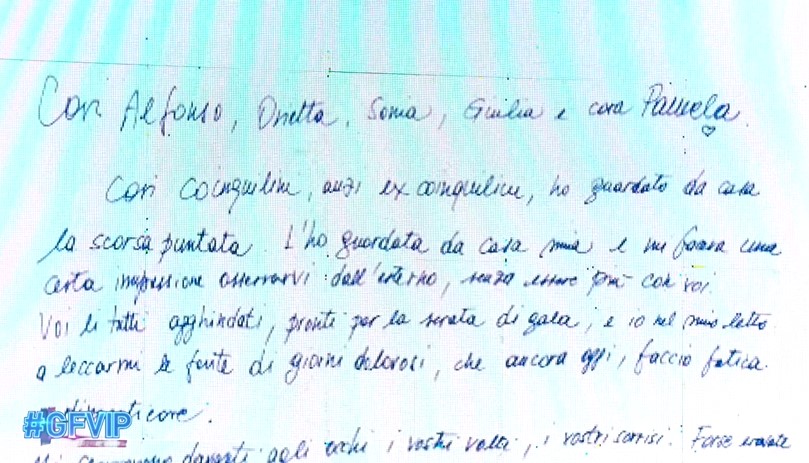 Cari Alfonso, Orietta, Sonia, Giulia e cara Pamela
Cari Coinquilini, anzi ex coinquilini, ho guardato da casa
la scorsa puntata. L'ho guardata da casa mia e mi faceva una
certa impressione osservarvi dall'esterno, senza essere più con voi.
Voi lì tutti agghindati, pronti per la serata di gala, e io nel mio letto
a leccarmi le ferite di giorni dolorosi, che ancora oggi, faccio fatica
#GFVIP
davanti agli occhi i vostri volti, i vostri sorrisi. Forse eravate